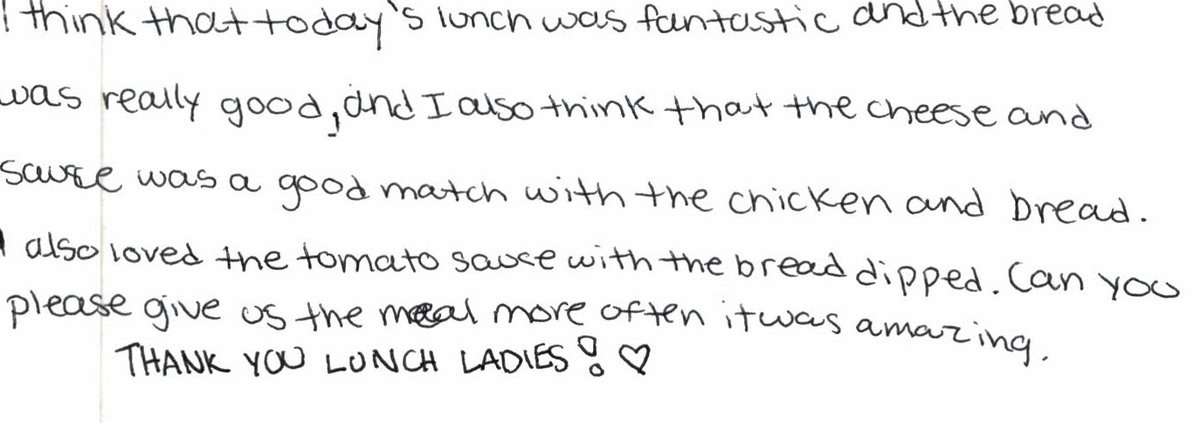 I think that today's lunch was fantastic and the bread
was really good, and I also think that the cheese and
sauce was a good match with the chicken and bread.
I also loved the tomato sauce with the bread dipped. Can you
please give us the meal more often it was amazing.
THANK YOU LUNCH LADIES! ♡